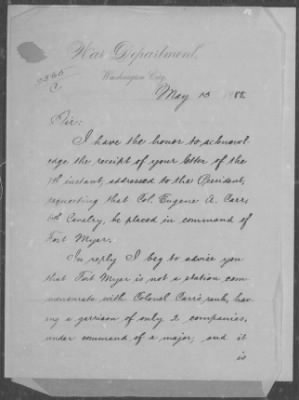 War Department,
Washington City,
May 10 1888
Sir:
I have the honor to acknowl-
edge the receipt of your letter of the
instant, addressed to the President,
requesting that Col. Eugene A. Carr,
6th Cavalry, be placed in command of
Fort Myer.
In reply I beg to advise you
that Fort Myer is not a station com-
mensurate with Colonel Carr's rank, hav-
ing a garrison of only 2 companies,
under command of a major; and it
is